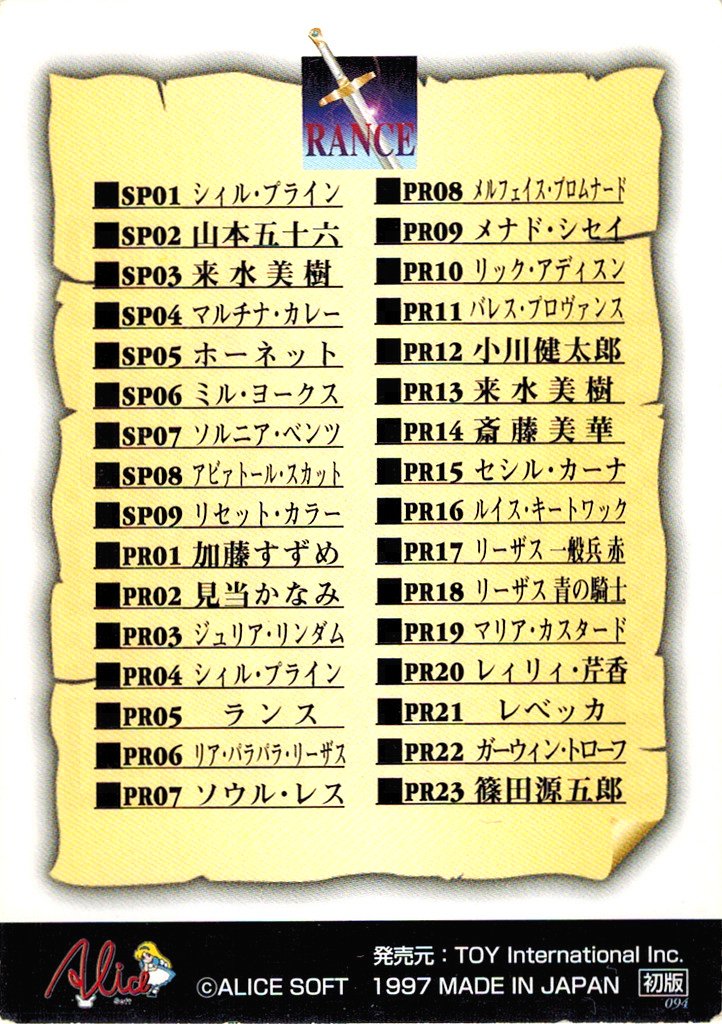 RANCE
■SP01 シィル・プライン
■SP02 山本五十六
■SP03 来水美樹
■SP04 マルチナ・カレー
■SP05 ホーネット
■SP06 ミル・ヨークス
■SP07 ソルニア・ベンツ
■SP08 アビァトール・スカット
■SP09 リセット・カラー
■PR01 加藤すずめ
■PR02 見当かなみ
■PR03 ジュリア・リンダム
■PR04 シィル・プライン
■PR05 ランス
■PR06 リア・パラパラ・リーザス
■PR07 ソウル・レス
■PR08 メルフェイス・プロムナード
■PR09 メナド・シセイ
■PR10 リック・アディスン
■PR11 バレス・プロヴァンス
■PR12 小川健太郎
■PR13 来水美樹
■PR14 斎藤美華
■PR15 セシル・カーナ
■PR16 ルイス・キートワック
■PR17 リーザス 一般兵 赤
■PR18 リーザス 青の騎士
■PR19 マリア・カスタード
■PR20 レィリィ・芹香
■PR21 レベッカ
■PR22 ガーウィン・トローフ
■PR23 篠田源五郎
Alice
発売元：TOY International Inc.
©ALICE SOFT 1997 MADE IN JAPAN 初版
094